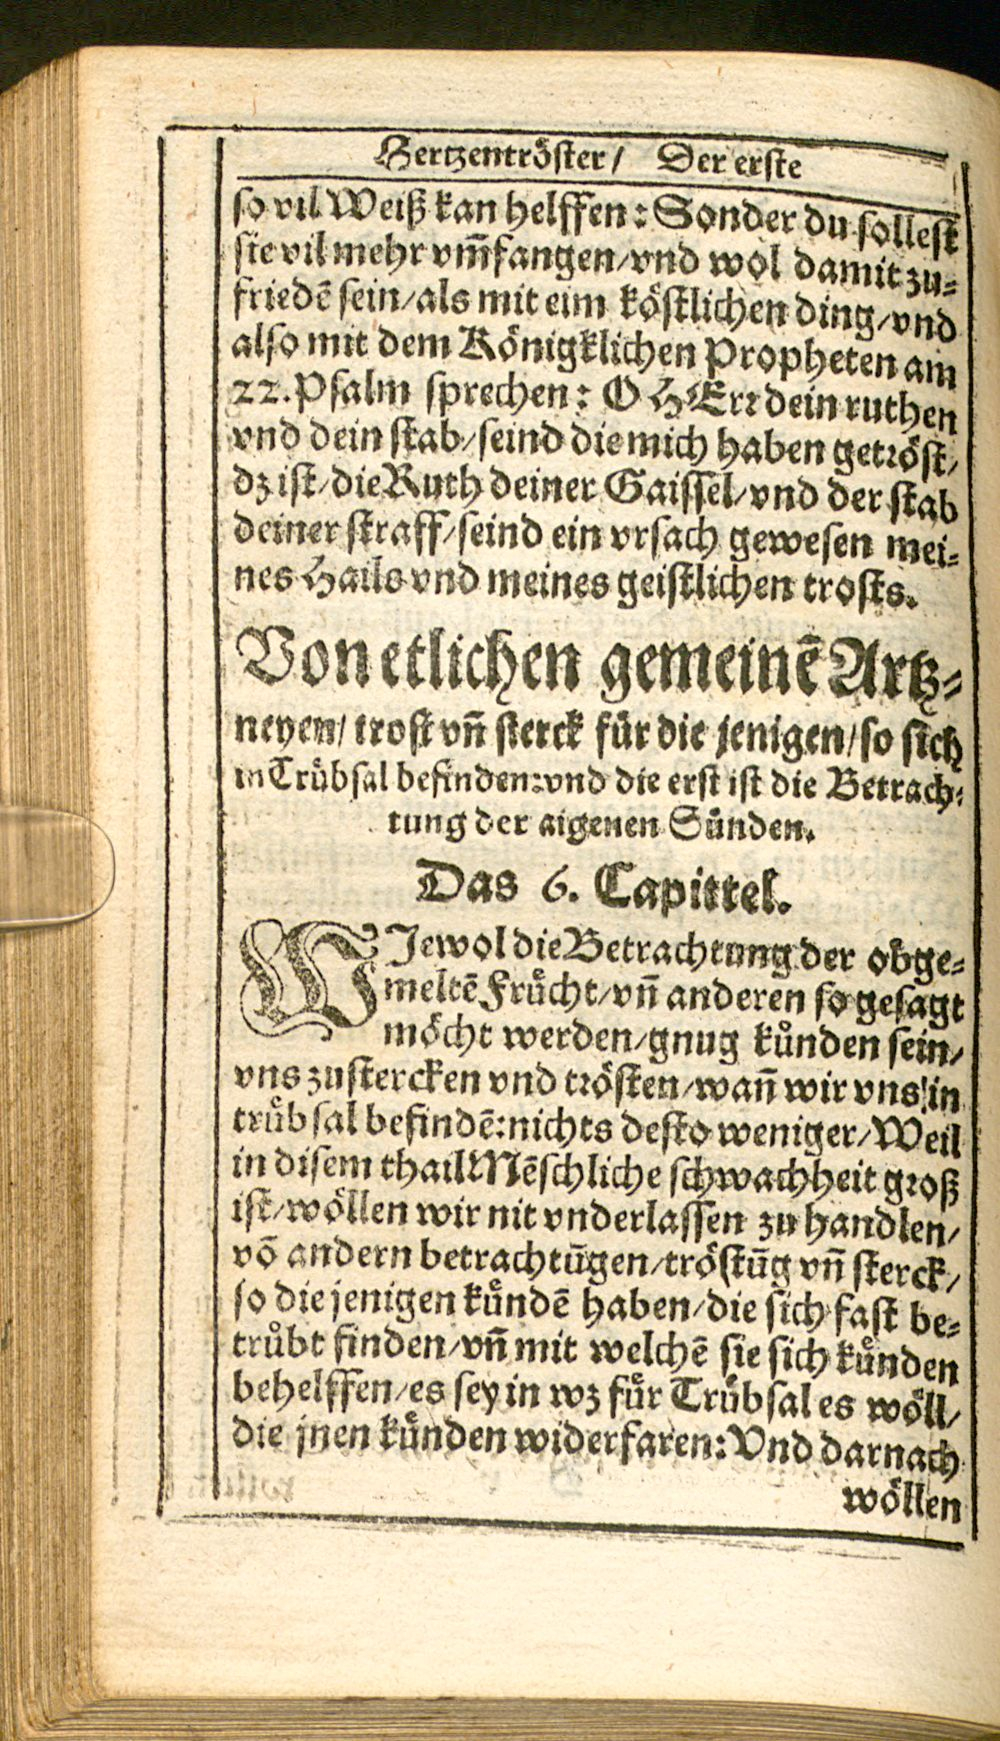 Hertzentröster / Der erste
so vil Weiß kan helffen: Sonder du sollest
sie vil mehr vm̃fangen/vnd wol damit zu-
friedẽ sein/als mit eim köstlichen ding/vnd
also mit dem Königklichen Propheten am
22. Psalm sprechen: O HErr dein ruthen
vnd dein stab/seind die mich haben getröst/
dz ist/die Ruth deiner Gaissel/vnd der stab
deiner straff/seind ein vrsach gewesen mei-
nes Hails vnd meines geistlichen trosts.
Von etlichen gemeinẽ Artz-
neyen/ trost vñ sterck für die jenigen/so sich
in Trübsal befinden: vnd die erst ist die Betrach-
tung der aigenen Sünden.
Das 6. Capittel.
WJewol die Betrachtung der obge-
meltẽ Frücht/vñ anderen so gesagt
möcht werden/gnug kůnden sein/
vns zustercken vnd trösten/wañ wir vns in
trübsal befindẽ: nichts desto weniger/Weil
in disem thail Mẽschliche schwachheit groß
ist/wöllen wir nit vnderlassen zu handlen/
võ andern betrachtũgen/tröstũg vñ sterck/
so die jenigen kündẽ haben/die sich fast be-
trůbt finden/vñ mit welchẽ sie sich künden
behelffen/es sey in wz für Trübsal es wöll/
die jnen künden widerfaren: Vnd darnach
wöllen